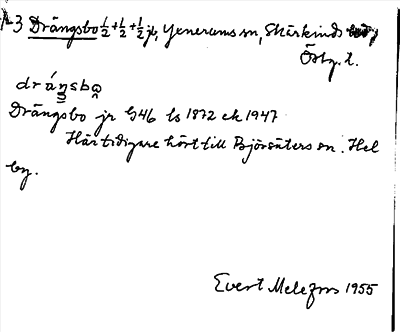 3 Drängsbo ½+½+½ jr, Yxnerums sn, Skärkinds hd,
Östg. l.
dráŋsbo̭
Drängsbo jr G46 ls 1872 ek 1947
Här tidigare hört till Björsäters sn. Hel
by.
Evert Melefors 1955